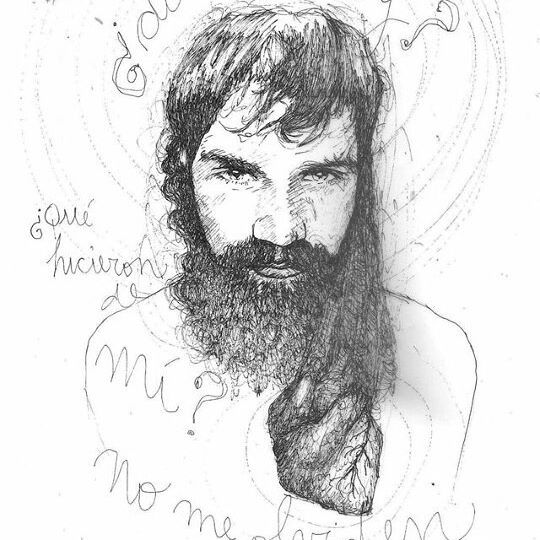 ¿Qué
hicieron
de
Mí?
No me olviden